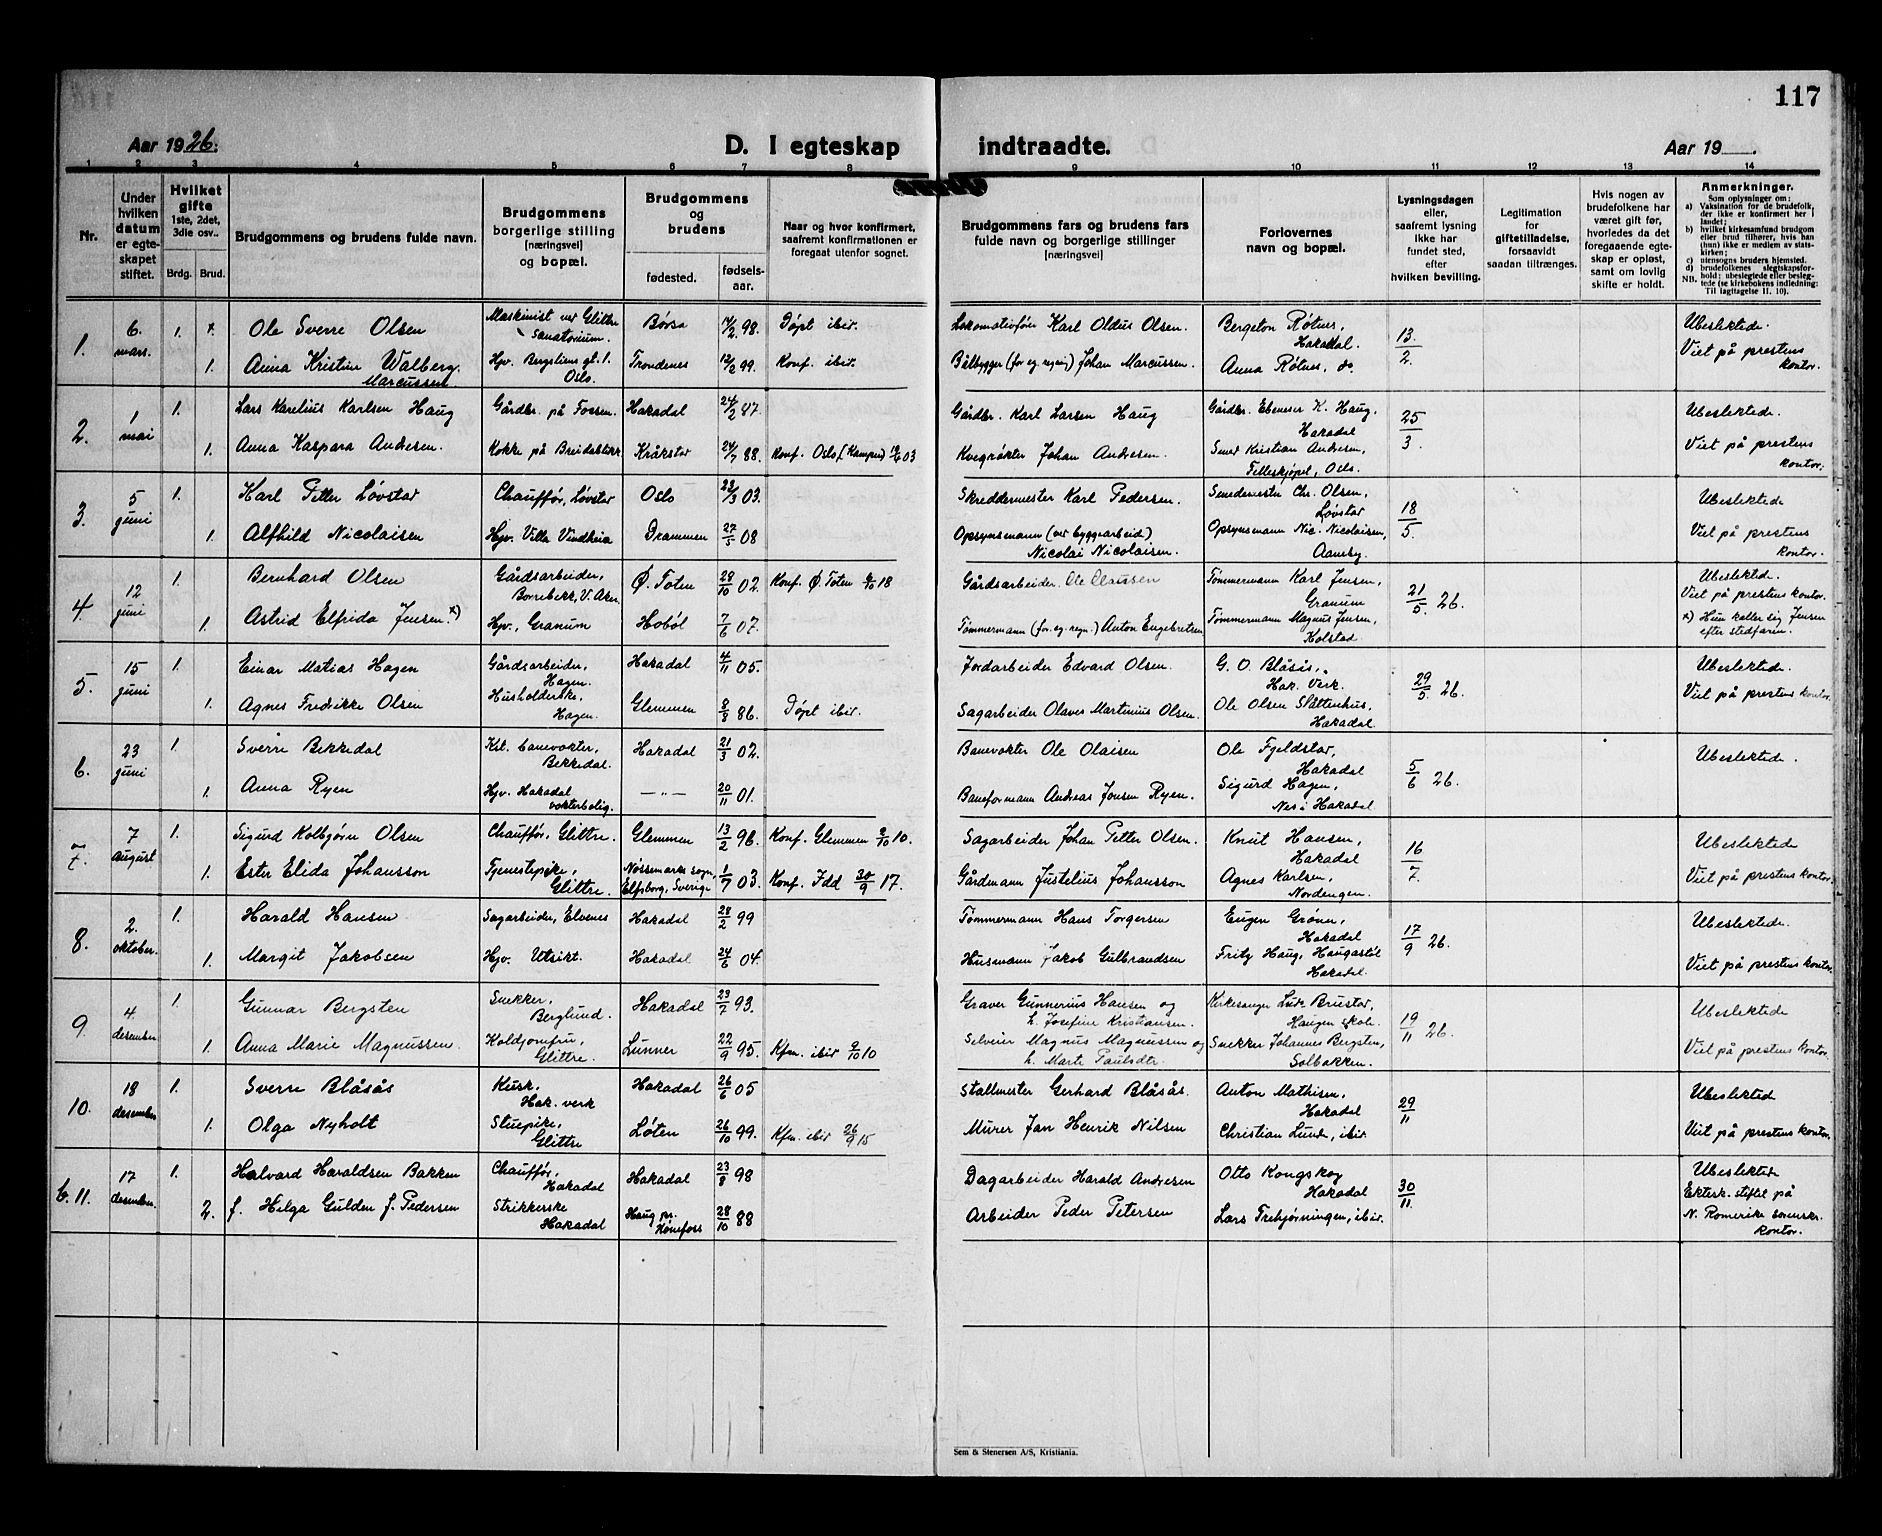 117
Aar 1926.
D. I egteskap indtraadte.
Aar 19 .
1 2 3 4 5 6 7 8 9 10 11 12 13 14
Nr.
Under hvilken datum er egteskapet stiftet.
Hvilket gifte
1ste, 2det, 3die osv..
Brdg. Brud.
Brudgommens og brudens fulde navn.
Brudgommens borgerlige stilling [næringsvei] og bopæl.
Brudgommens og brudens
fødested. fødselsaar.
Naar og hvor konfirmert, saafremt konfirmationen er foregaat utenfor sognet.
Brudgommens fars og brudens fars fulde navn og borgerlige stillinger [næringsvei]
Forlovernes navn og bopæl.
Lysningsdagen eller, saafremt lysning ikke har fundet sted, efter hvilken bevilling.
Legitimation for giftetilladelse, forsaavidt saadan tiltrænges.
Hvis nogen av brudefolkene har været gift før, hvorledes da det foregaaende egteskap er opløst, samt om lovlig skifte er holdt.
Anmerkninger.
Som oplysning om:
a) Vaksination for de brudefolk, der ikke er konfirmert her i landet;
b) hvilket kirkesamfund brudgom eller brud tilhører, hvis han (hun) ikke er medlem av statskirken;
c) utensogns bruders hjemsted.
d) brudefolkenes slegtskapsforhold: ubeslegtede eller beslegtede (se kirkebokens indledning: NB. Til iagttagelse II. 10).
1. 6. mars. 1. Ole Sverre Olsen Maskinist ved Glittre Sanatorium. Børsa 14/2 98. Døpt ibid. Lokomotivfører Karl Oldus Olsen. Bergeton Røtnes, Hakadal. 13/2. Ubeslektede.
1. Anna Kristine Walberg Marcussen Hjv. Bergsliens gt. 1. Oslo. Trondenes 12/2 99. Konf. ibid. Båtbygger (for eg. regning) Johan Marcussen. Anna Røtnes, do. Viet på prestens kontor.
2. 1 mai 1. Lars Karelius Karlsen Haug Gårdbr. på Fossen. Hakadal 24/2 87 Gårdbr. Karl Larsen Haug Gårdbr. Ebeneser K. Haug, Hakadal 25/3 Ubeslektede.
1. Anna Kaspara Andresen. Kokke på Breidablikk Kråkstad 24/7 88. Konf. Oslo (Kampen) 03 Kvegrøkter Johan Andresen. Smed Kristian Andresen, Oslo. Viet på prestens kontor.
3. 5 juni 1. Karl Petter Løvstad Chauffør, Løvstad Oslo 23/3 03. Skreddermester Karl Pedersen. Smedemester Chr. Olsen, Løvstad 18/5. Ubeslektede
1. Alfhild Nicolaisen Hjv. Villa Vindheia Drammen 27/5 08 Opsynsmann (ved byggearbeid) Nicolai Nicolaisen. Opsynsmann Nic. Nicolaisen, Aaneby. Viet på prestens kontor.
4. 12 juni 1. Bernhard Olsen Gårdsarbeider, Borrebekk, V. Aker. Ø. Toten 28/10 02. Konf. Ø. Toten 18 Gårdsarbeider Ole Olaussen Tømmermann Karl Jensen, Granum 21/5. 26. Ubeslektede. Viet på prestens kontor.
1. Astrid Elfrida Jensen. x) Hjv., Granum Hobøl 7/6 07. Tømmermann (for eg. regn.) Anton Engebretsen Tømmermann Magnus Jensen, Kolstad x) Hun kaller sig Jensen efter stedfaren.
5. 15 juni 1. Einar Matias Hagen Gårdsarbeider, Hagen. Hakadal 4/11 05. Jordarbeider Edvard Olsen. G. O. Blåsås, Hak. Verk. 29/5 26. Ubeslektede.
1. Agnes Fredrikke Olsen Husholderske, Hagen. Glemmen 8/8 86. Døpt ibid. Sagarbeider Olaves Martinius Olsen. Ole Olsen Slåttenhus, Hakadal. Viet på prestens kontor.
6. 23 juni 1. Sverre Bekkedal Kst. banevokter, Bekkedal. Hakadal 21/3 02. Banevokter Ole Olaisen Ole Fjeldstad, Hakadal 5/6 26. Ubeslektede.
1. Anna Ryen Hjv. Hakadal vokterbolig. —"— 20/11 01. Baneformann Andreas Jonsen Ryen. Sigurd Hagen, Nes i Hakadal.
7. 7 august 1. Sigurd Kolbjørn Olsen Chauffør, Glittre. Glemmen 13/2 96. Konf. Glemmen 2/10 10. Sagarbeider Johan Petter Olsen. Knut Hansen, Hakadal 16/7. Ubeslektede
1. Ester Elida Johansson Tjenestepike, Glittre. Nössemarks sogn, Elfsborg, Sverige 1/7 03. Konf. Idd 30/9 17. Gårdmann Justelius Johansson Agnes Karlsen, Nordengen. Viet på prestens kontor.
8. 2. oktober. 1. Harald Hansen Sagarbeider, Elvenes Hakadal 28/2 99 Tømmermann Hans Torgersen Eugen Grønn, Hakadal 17/9 26. Ubeslektede.
1. Margit Jakobsen Hjv. Utsikt. Hakadal 24/6 04. Husmann Jakob Gulbrandsen Fritz Haug, Haugastøl Hakadal. Viet på prestens kontor.
9 4. desember 1. Gunnar Bergsten Snekker, Berglund. Hakadal 23/7 93. Graver Gunnerius Hansen og h. Josefine Kristiansen. Kirkesanger Ludv. Brustad, Haugen skole. 19/11 26. Ubeslektede
1. Anna Marie Magnussen. Koldjomfru, Glittre. Lunner 22/9 95. Kfm. ibid 2/10 10 Selveier Magnus Magnussen og h. Marte Paulsdtr. Snekker Johannes Bergsten, Solbakken. Viet på prestens kontor.
10. 18 desember 1. Sverre Blåsås Kusk. Hak. verk Hakadal 26/6 05 Stallmester Gerhard Blåsås. Anton Mathisen, Hakadal 29/11 Ubeslektede
1. Olga Nyholt Stuepike, Glittre Løten 26/10 99. Kfm. ibid 26/9 15 Murer Jan Henrik Nilsen Christian Lunde, ibid. Viet på prestens kontor.
b. 11. 17 desember. 1. Halvard Haraldsen Bakken Chauffør, Hakadal Hakadal 23/8 98 Dagarbeider Harald Andresen Otto Kongskog Hakadal 30/11. Ubeslektede
2. f. Helga Gulden f. Pedersen Strikkerske Hakadal Haug pr. Hønefoss 28/10 88 Arbeider Peder Petersen Lars Trehjørningen, ibid. Ektesk. stiftet på N. Romerike sorenskr. kontor.
Sem & Stenersen A/S, Kristiania.